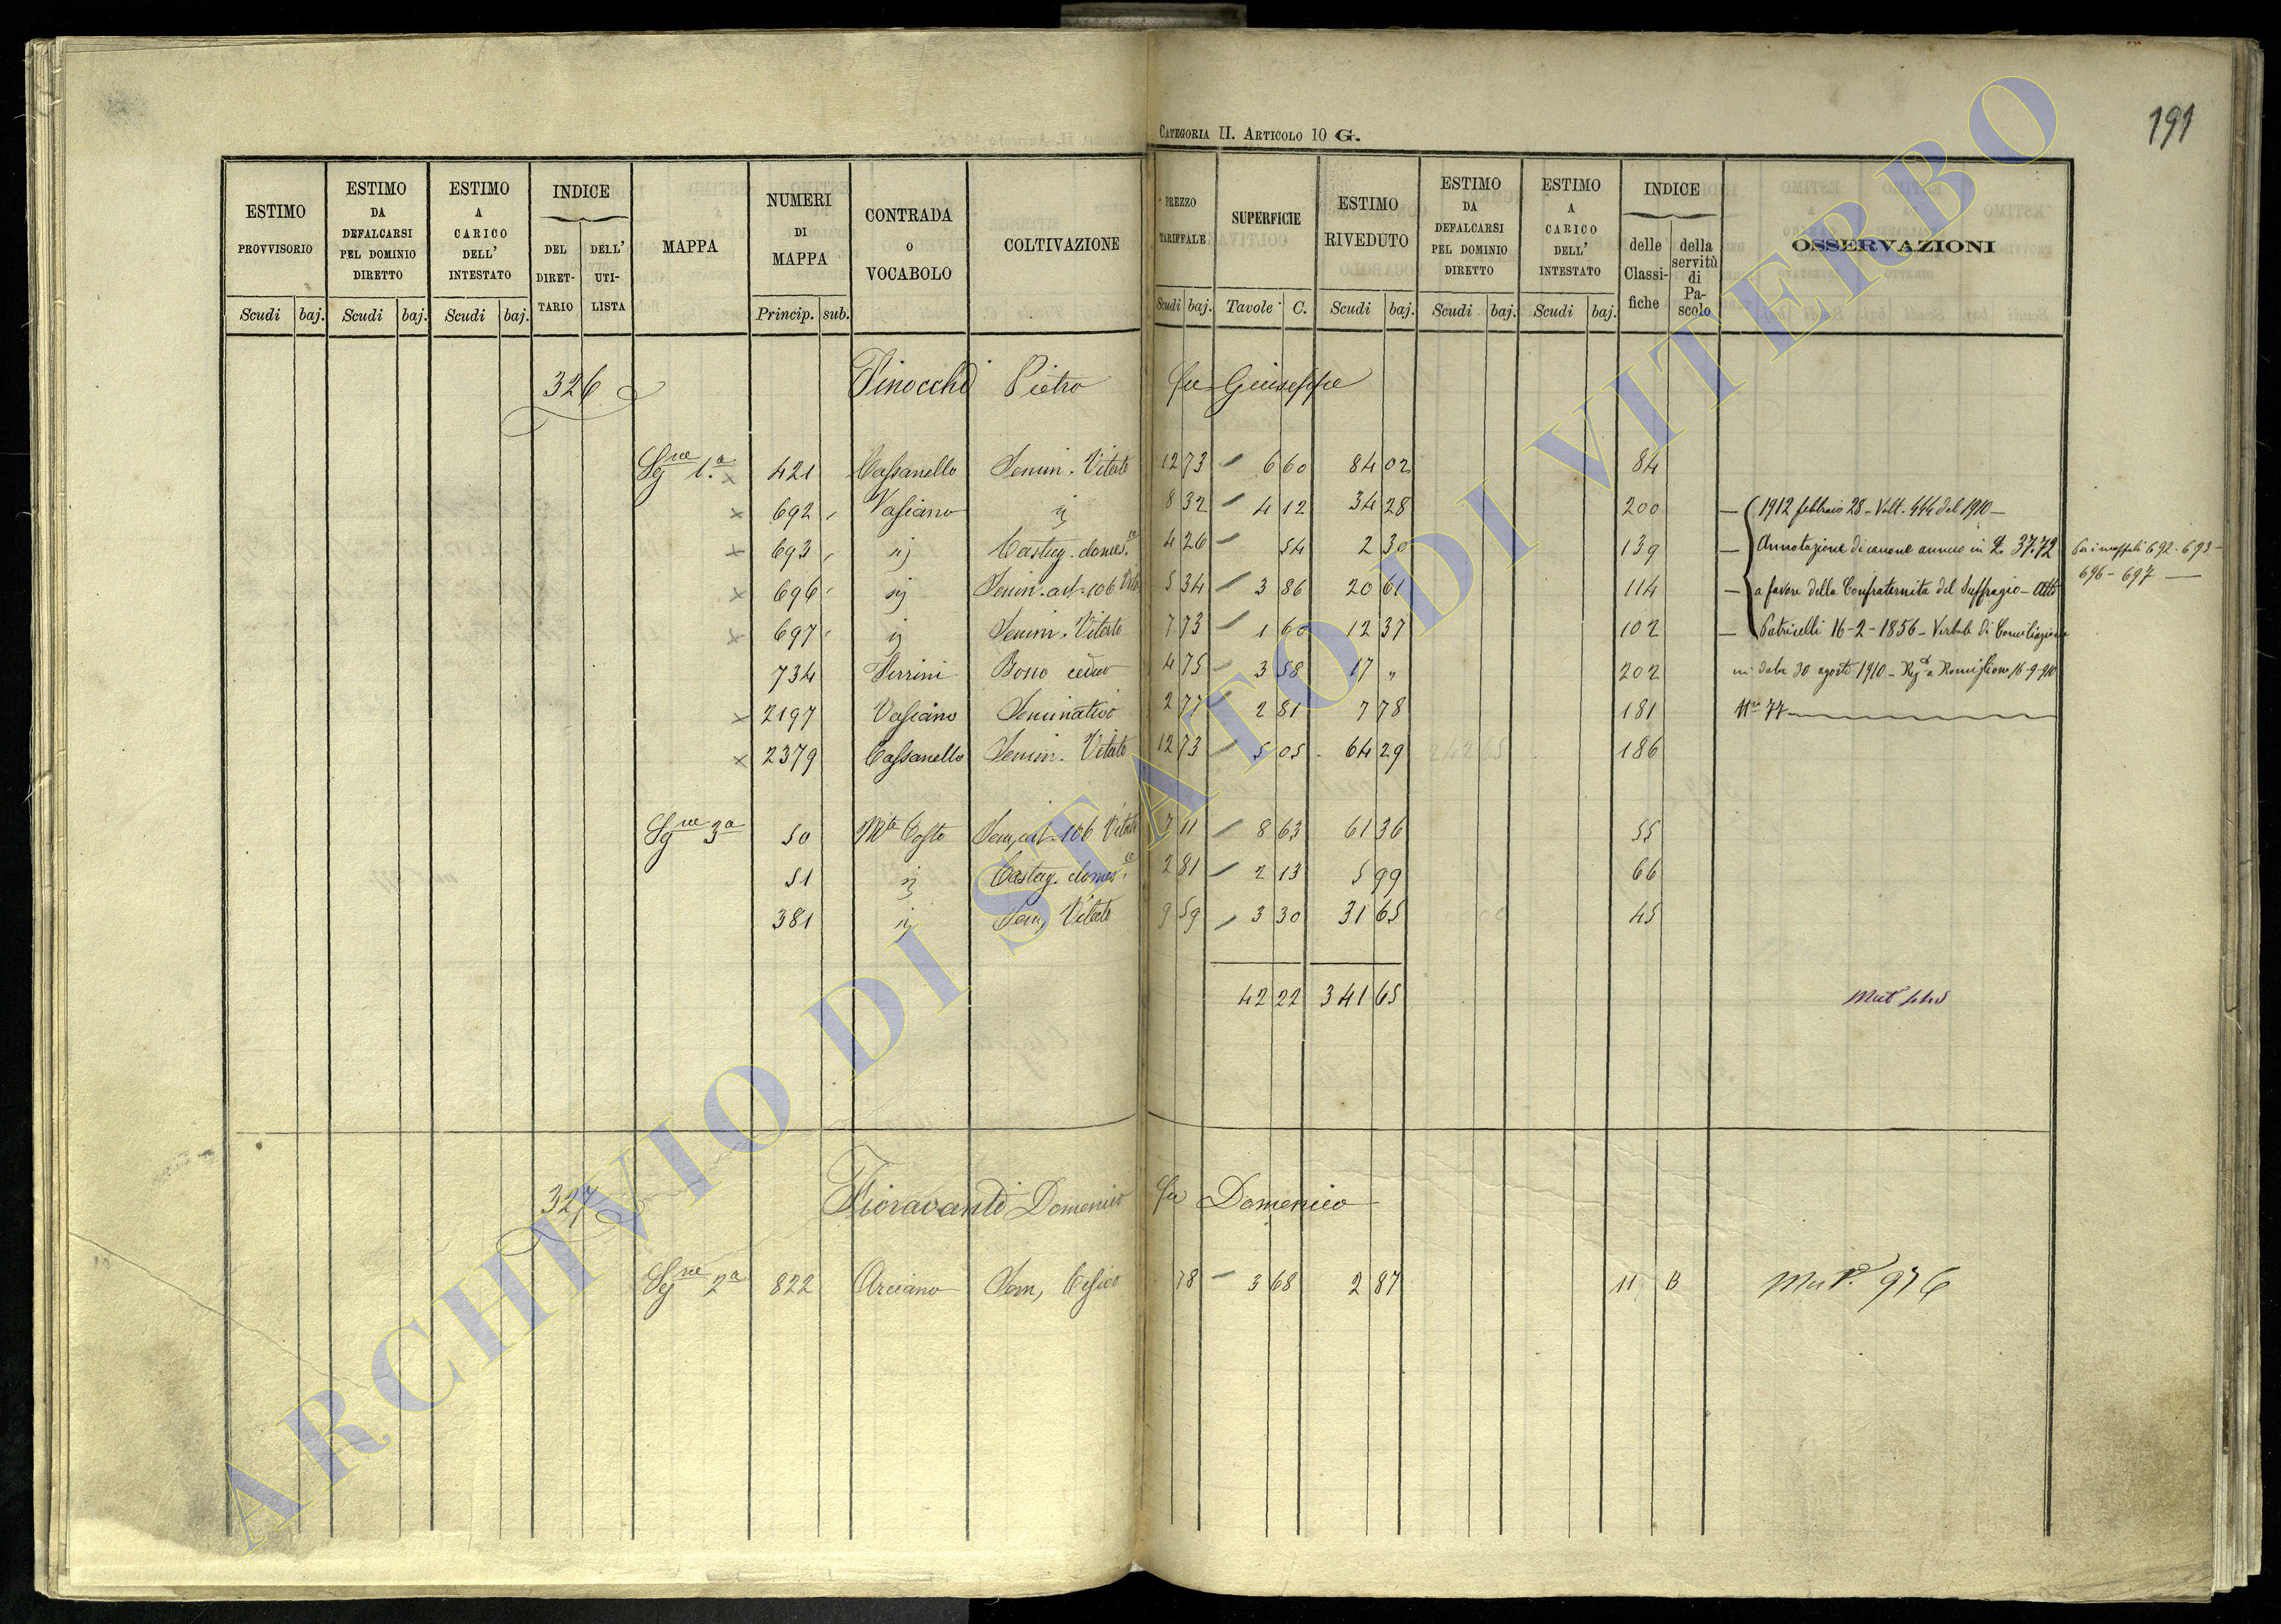 191
CATEGORIA II. ARTICOLO 10 G.
ESTIMO PROVVISORIO Scudi baj.
ESTIMO DA DEFALCARSI PEL DOMINIO DIRETTO Scudi baj.
ESTIMO A CARICO DELL' INTESTATO Scudi baj.
INDICE DEL DIRET-TARIO DELL' UTI-LISTA
MAPPA
NUMERI DI MAPPA Princip. sub.
CONTRADA O VOCABOLO
COLTIVAZIONE
PREZZO TARIFFALE Scudi baj.
SUPERFICIE Tavole C.
ESTIMO RIVEDUTO Scudi baj.
ESTIMO DA DEFALCARSI PEL DOMINIO DIRETTO Scudi baj.
ESTIMO A CARICO DELL' INTESTATO Scudi baj.
INDICE delle Classi-fiche della servitù di Pa-scolo
OSSERVAZIONI
326 Finocchi Pietro fu Giuseppe
1.a x 421 Cassanello Semin. Vitato 12 73 6 60 84 02 84
x 692 Vasiano ij 8 32 4 12 34 28 200 1912 febbraio 28 - Volt. 444 del 1910
x 693 ij Castag. domes.ce 4 26 54 2 30 139 Annotazione di canone annuo in £. 37.72 Per i mappali 692 - 693 -
x 696 ij 5 34 3 86 20 61 114 a favore della Confraternita del Suffragio - Atto 696 - 697
x 697 ij Semin. Vitato 7 73 1 60 12 37 102 Patricelli 16-2-1856 - Verbale di Conciliazione
734 Ferrini Bosco ceduo 4 75 3 58 17 " 202 in data 30 agosto 1910 - Reg.º a Ronciglione 16-9-910
x 2197 Vasiano Seminativo 2 77 2 81 7 78 181 77
x 2379 Cassanello Semin. Vitato 12 73 5 05 64 29 186
3a 50 Mte Costo 7 11 8 63 61 36 55
51 ij Castag. domes.ce 2 81 2 13 5 99 66
381 ij Sem, Vitato 9 59 3 30 31 65 45
42 22 341 65
327 Fioravanti Domenico fu Domenico
2a 822 Arciano Sem, 78 3 68 2 87 11 B Mut. 976
ARCHIVIO DI STATO DI VITERBO